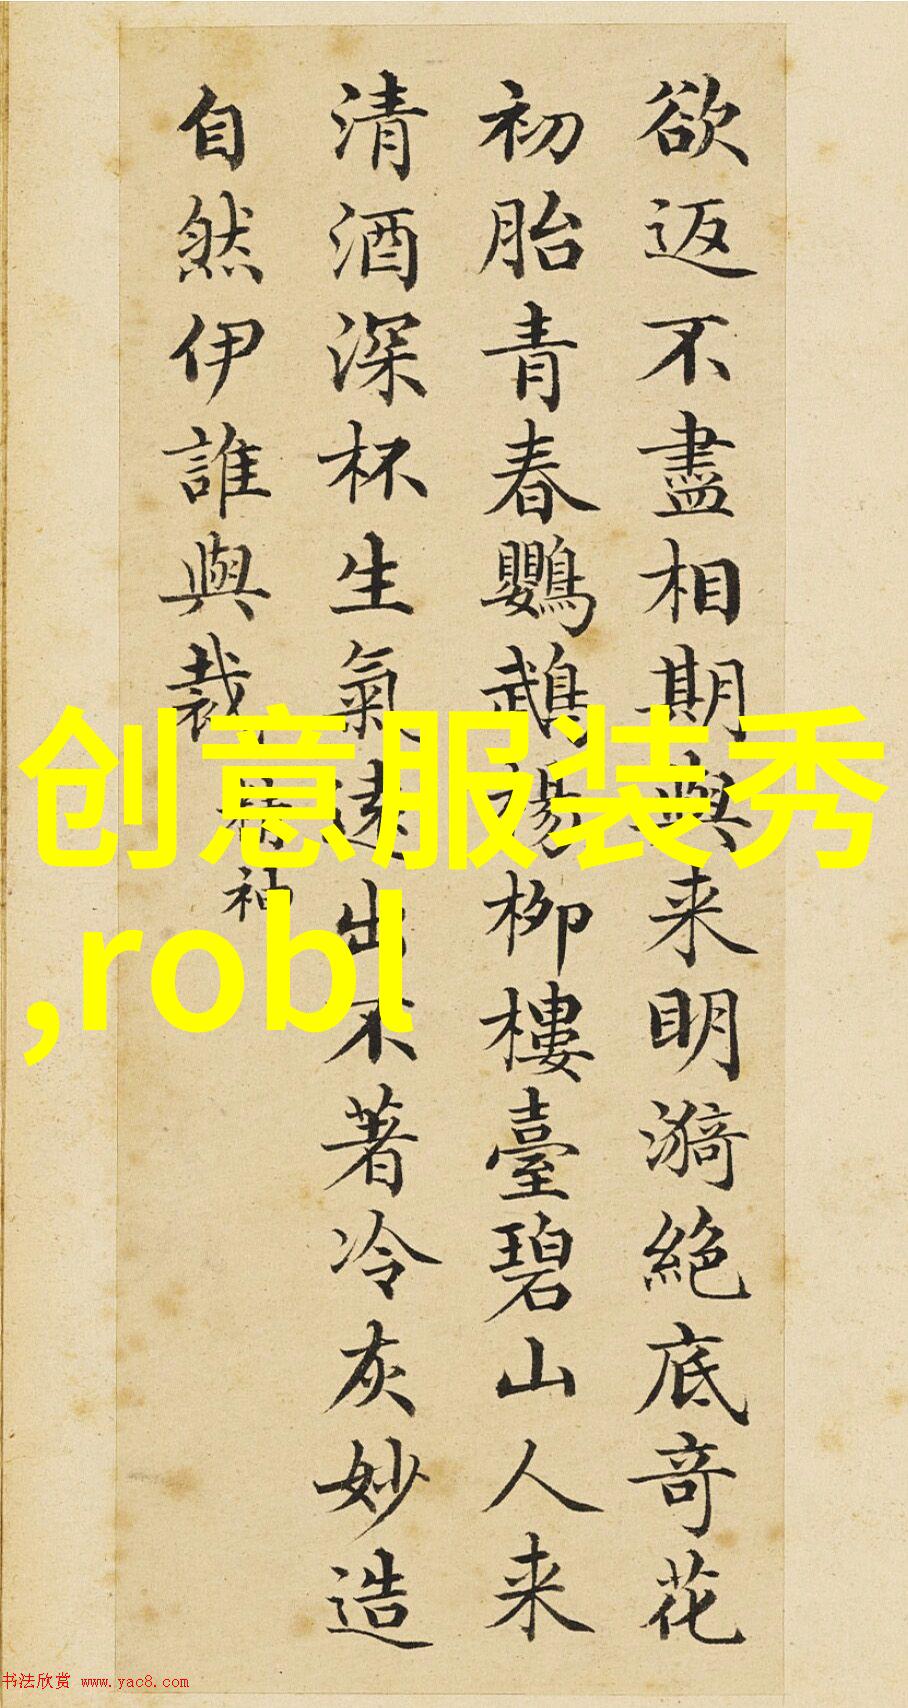 欲返不盡相期與来明漪絕底奇花
初胎青春鸚鵡楊柳樓臺碧山人来
清酒深杯生氣遠出不著冷灰妙造
自然伊誰與裁
精神
创意服装秀
,robl
书法欣赏 www.yac8.com